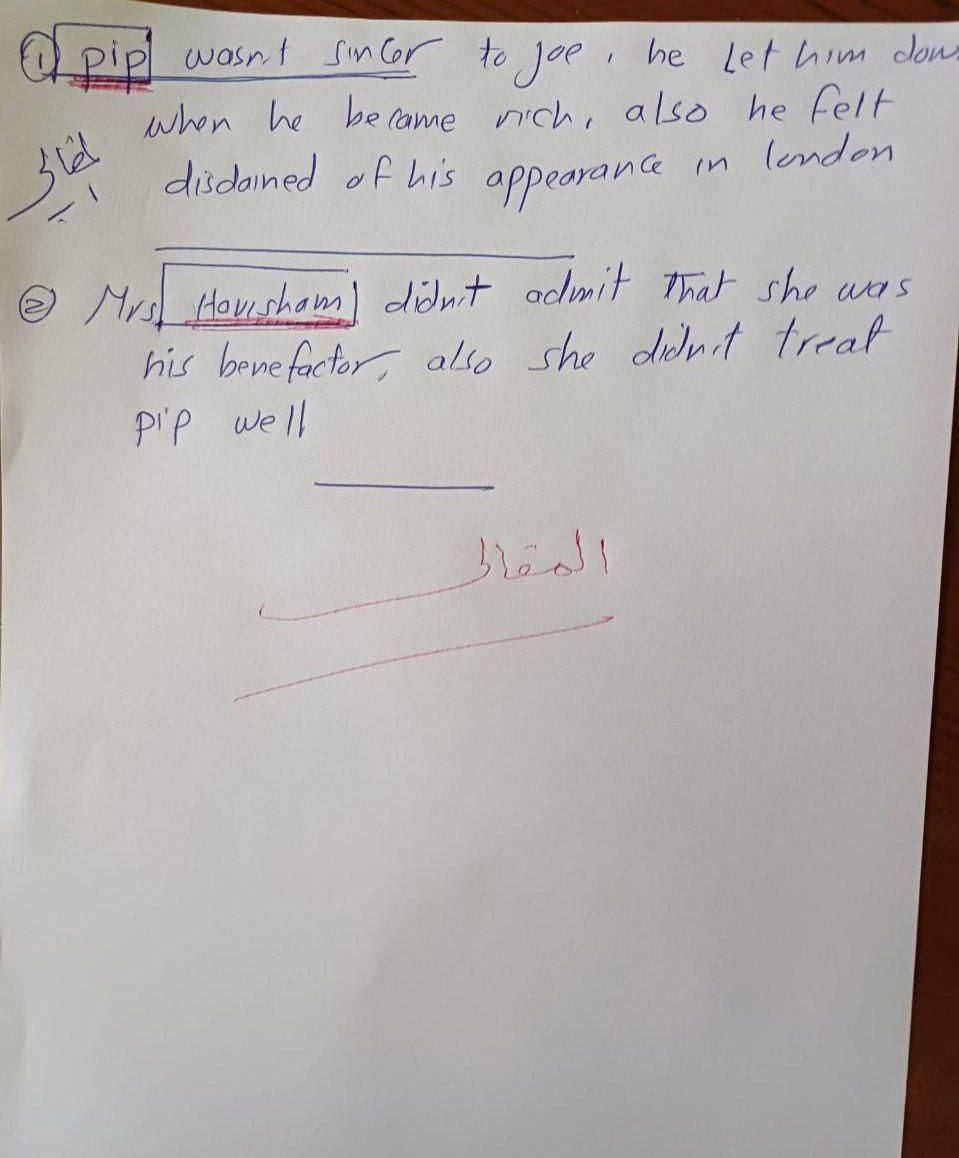 ① pip wasn't sincer to joe, he Let him dow
when he became rich, also he felt
disdained of his appearance in london
② Mrs Havisham didn't admit That she was
his benefactor, also she didn't treat
pip well
المقالى